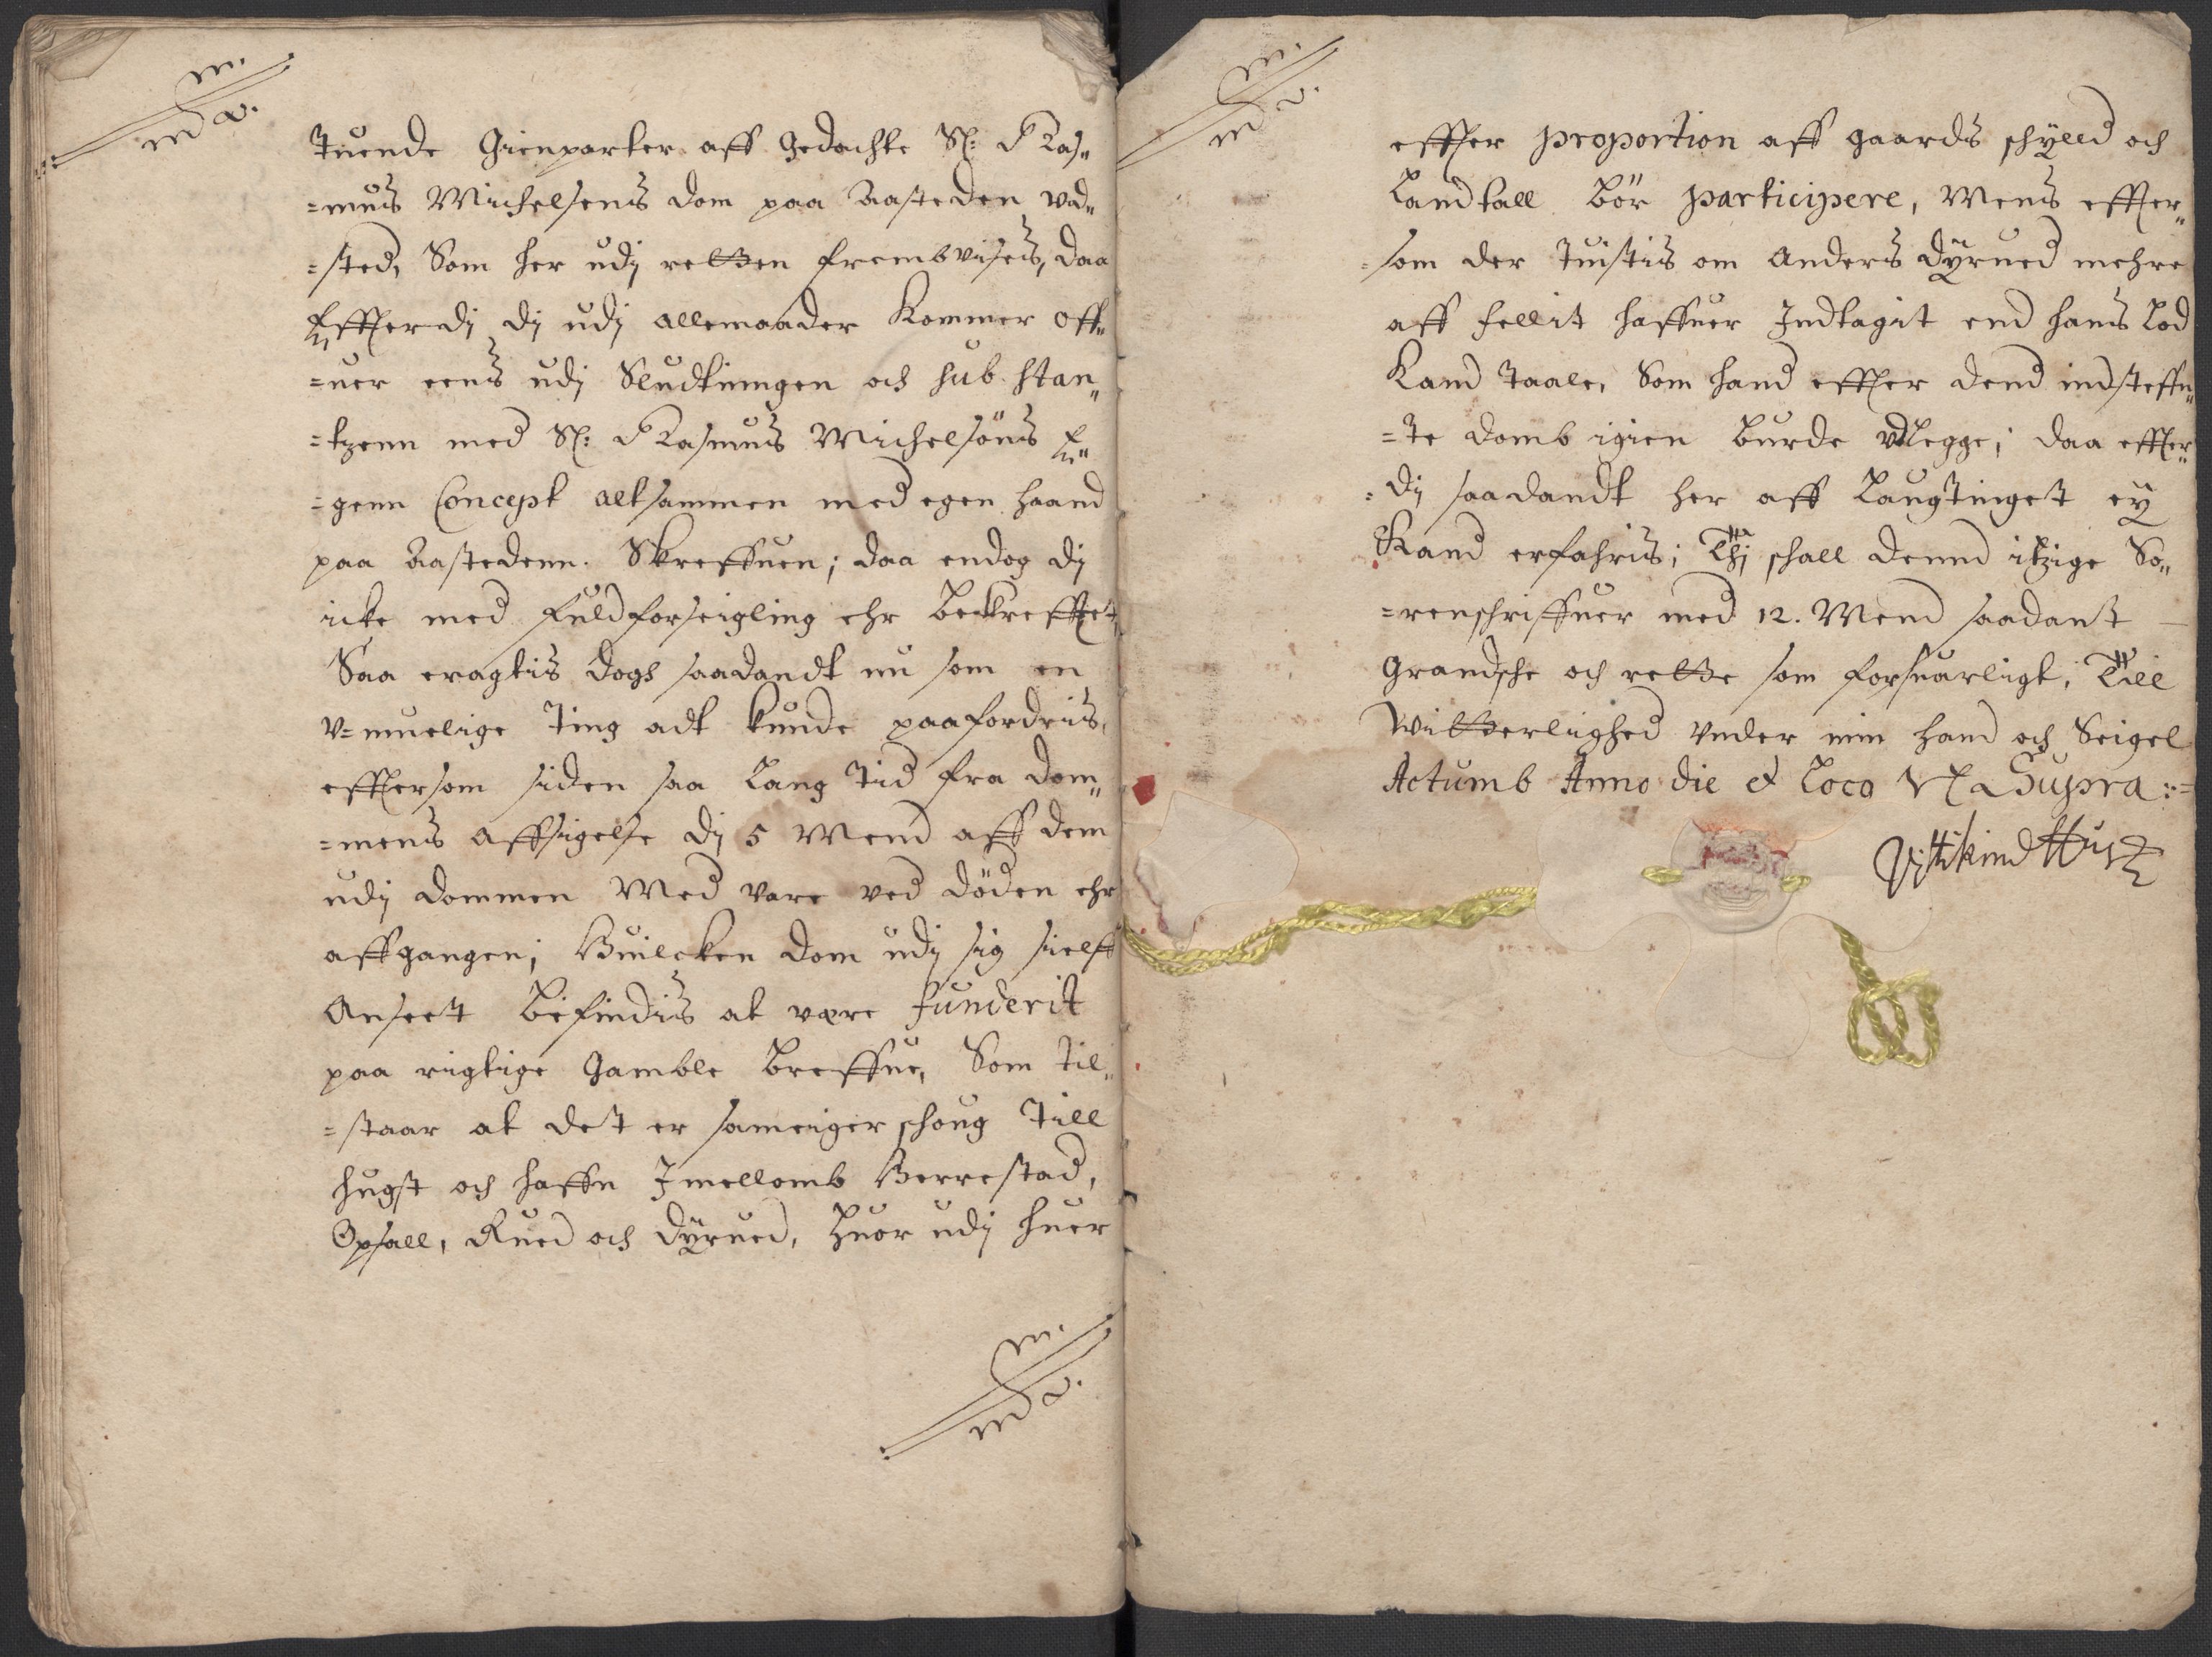 Tuende Gienparter aff Gedachte Sl: Ras„
=mus Michelsens dom paa Aasteden ud„
=sted, Som her udj retten frembvises, daa
Effterdj dj udj allemaader Kommer off„
=uer eens udj Sludtningen och sub stan„
=tzenn med Sl: Rasmus Michelsöns E„
=genn Concept altsammen med egen haand
paa Aastedenn. Skreffuen; daa endog dj
icke med Fuldforseigling ehr bekrefftet,
Saa eragtis dogh saadandt nu som en
v=muelige Ting adt kunde paafordris,
efftersom siden saa Lang Tid fra dom„
=mens affsigelse dj 5 Mend aff dem
udj dommen Med vare ved döden ehr
affgangen; Huilcken dom udj sig sielff
Anseett befindis at være funderit
paa rigtige Gamble breffue, Som til„
=staar at dett er sameiger schoug Till
hugst och haffn Jmellomb Berrestad,
Opsall, Rued och Dÿrued, huor udj huer
effter proportion aff gaards schÿlld och
Landtall bör participere, Mens effter„
=som der Tuistis om Anders Dÿrued mehre
aff fellit haffuer Jndtagit end hans Lod
Kand Taale, Som hand effter dend indsteffn„
=te domb igien burde udlegge; daa effter„
=dj saadandt her aff Laugtinget eÿ
Kand erfahris; Thj schall dennd itzige So„
=renschriffuer med 12. Mend saadant
Grandsche och rette som forsuarligt, Till
Witterlighed Vnder min Hand och Seigel
Actumb Anno die et Loco Vt Supra :=
Vittikind Hus